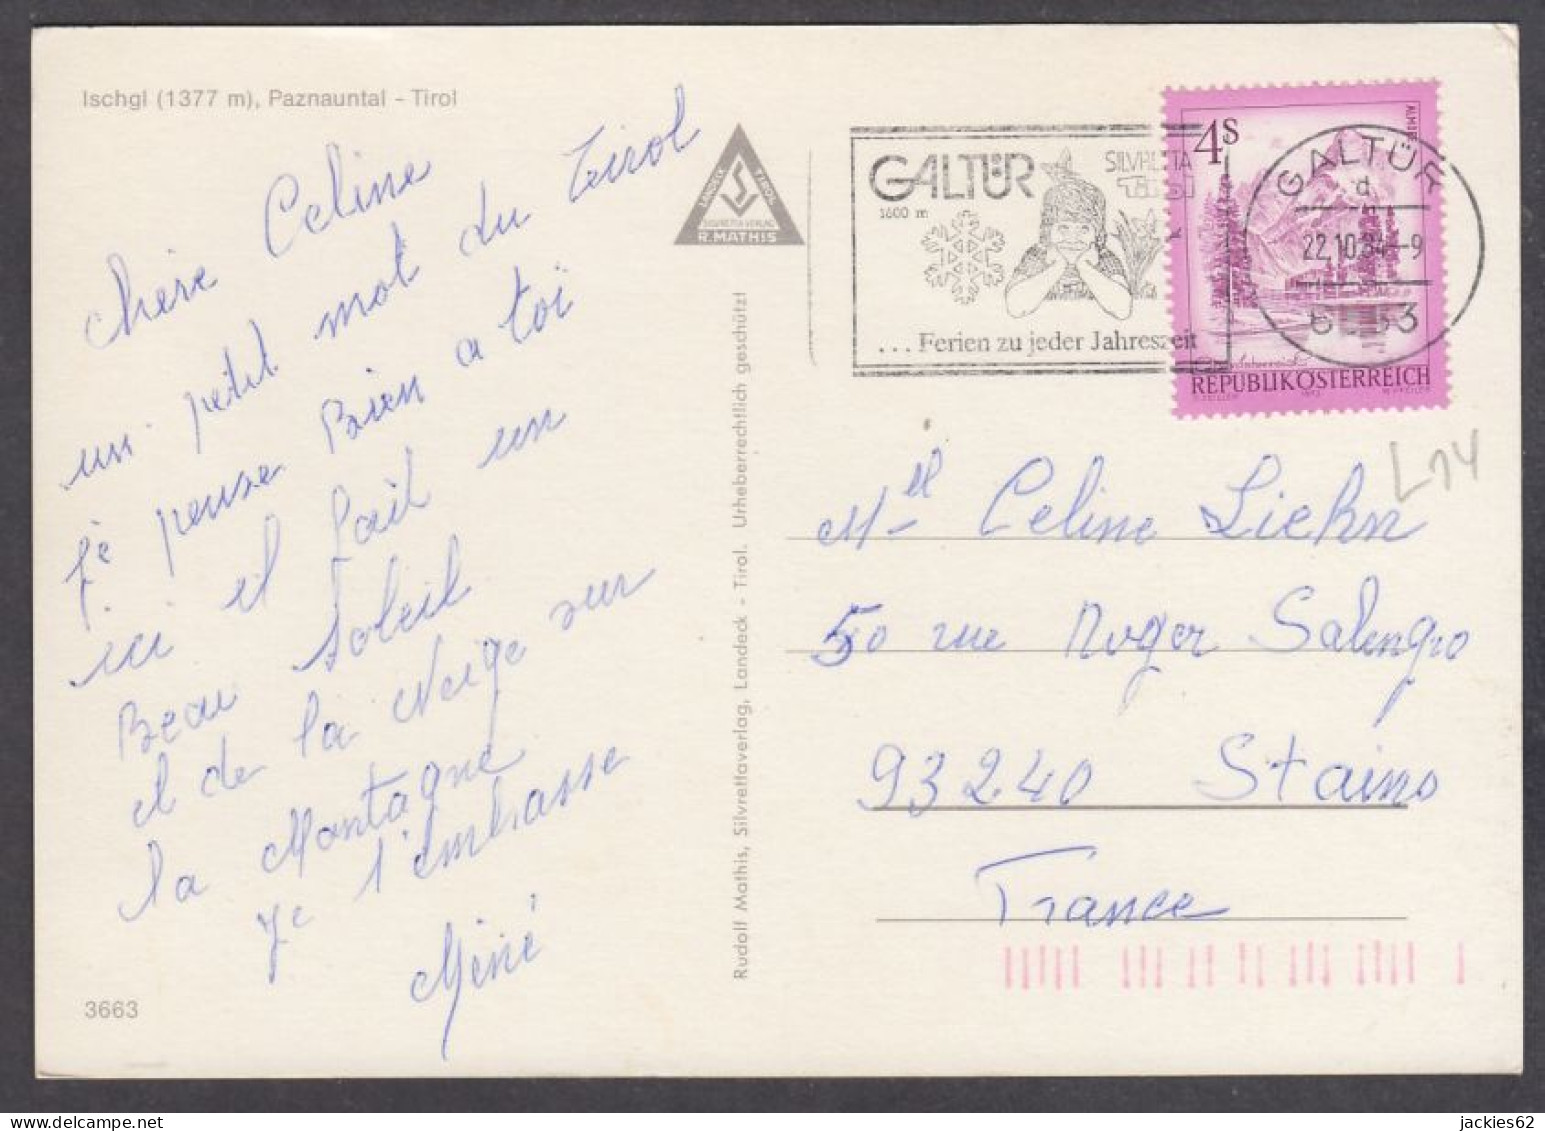 Ischgl (1377 m), Paznauntal - Tirol
chère Celine
un petit mot du tirol
je pense Bien a toi
ici il fait un
Beau soleil
et de la Neige sur
la Montagne
je t'embrasse
Mimi
3663
LANDECK TIROL
SILVRETTA-VERLAG
R. MATHIS
Rudolf Mathis, Silvrettaverlag, Landeck - Tirol. Urheberrechtlich geschützt
GALTÜR
1600 m
SILVRETTA
... Ferien zu jeder Jahreszeit
4S
ALMSEE
REPUBLIK ÖSTERREICH
GALTÜR
d
22.10.84-9
Mel Celine Liehn
L14
50 rue Roger Salengro
93240 Stains
France
jackies62